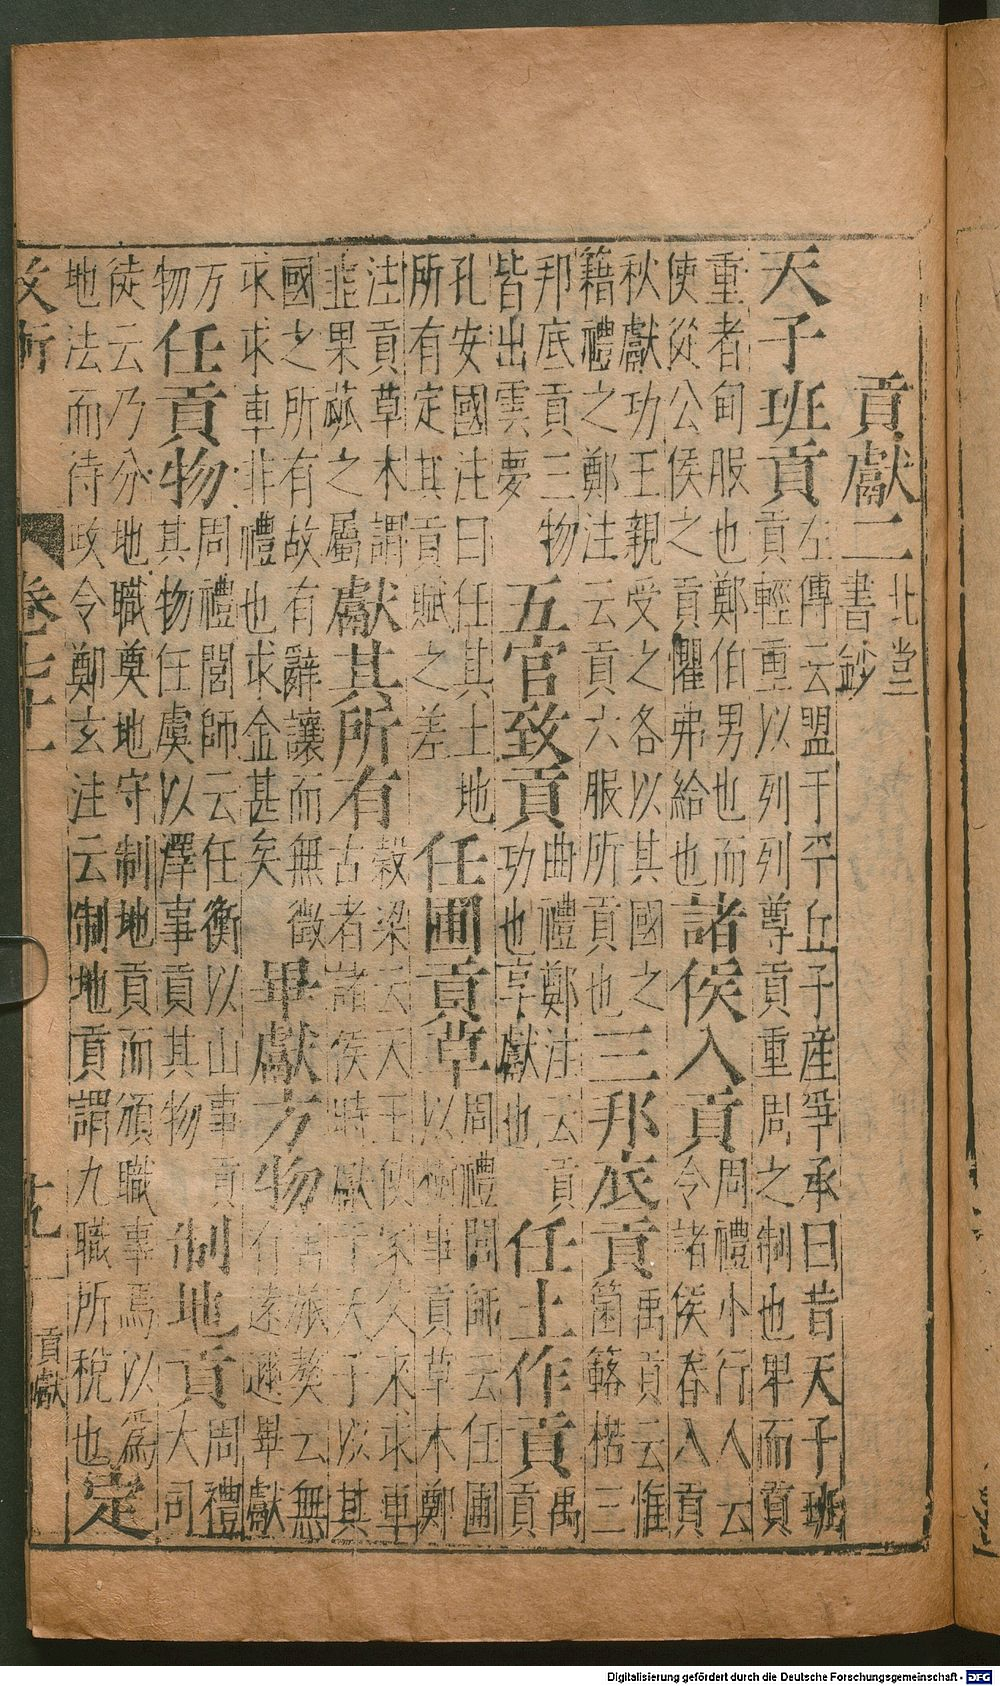 貢獻二北堂書鈔
天子班貢左傳云盟于平丘子產爭承曰昔天子班
貢輕重以列列尊貢重周之制也卑而貢
重者甸服也鄭伯男也而
使從公侯之貢懼弗給也諸侯入貢周禮小行人云
令諸侯春入貢
秋獻功王親受之各以其國之
籍禮之鄭注云貢六服所貢也三邦底貢禹貢云惟
箘簵楛三
邦底貢三物
皆出雲夢五官致貢曲禮鄭注云貢
功也享獻也任土作貢禹
貢
孔安國注曰任其土地
所有定其貢賦之差任圃貢草周禮閭師云任圃
以樹事貢草木鄭
注貢草木謂
韭果蓏之屬獻其所有穀梁云天王使家父來求車
古者諸侯時獻于天子以其
國之所有故有辭讓而無徵
求求車非禮也求金甚矣畢獻方物書旅獒云無
有遠邇畢獻
方
物任貢物周禮閭師云任衡以山事貢
其物物任虞以澤事貢其物制地貢周禮
大司
徒云乃分地職奠地守制地貢而頒職事焉以為
地法而待政令鄭玄注云制地貢謂九職所稅也定
政術 卷七十一 十九 貢獻
Digitalisierung gefördert durch die Deutsche Forschungsgemeinschaft - DFG